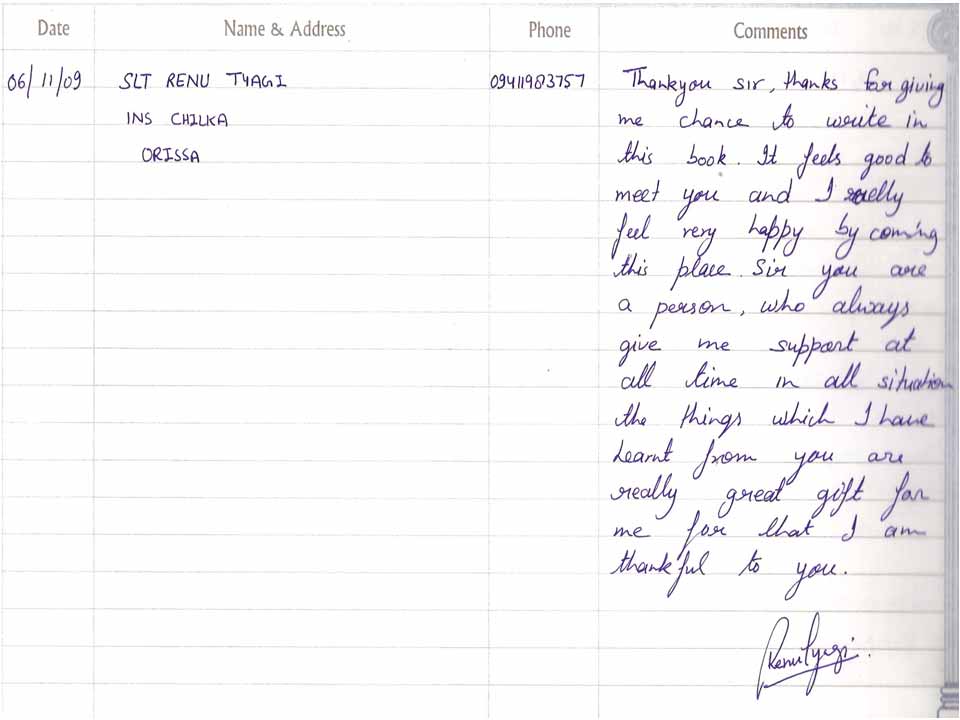 Date Name & Address Phone Comments
06/11/09 SLT RENU TYAGI 09411983757 Thankyou sir, thanks for giving
INS CHILKA me chance to write in
ORISSA this book. It feels good to
meet you and I really
feel very happy by coming
this place. Sir you are
a person, who always
give me support at
all time in all situation
the things which I have
learnt from you are
really great gift for
me for that I am
thankful to you.
Renu Tyagi.